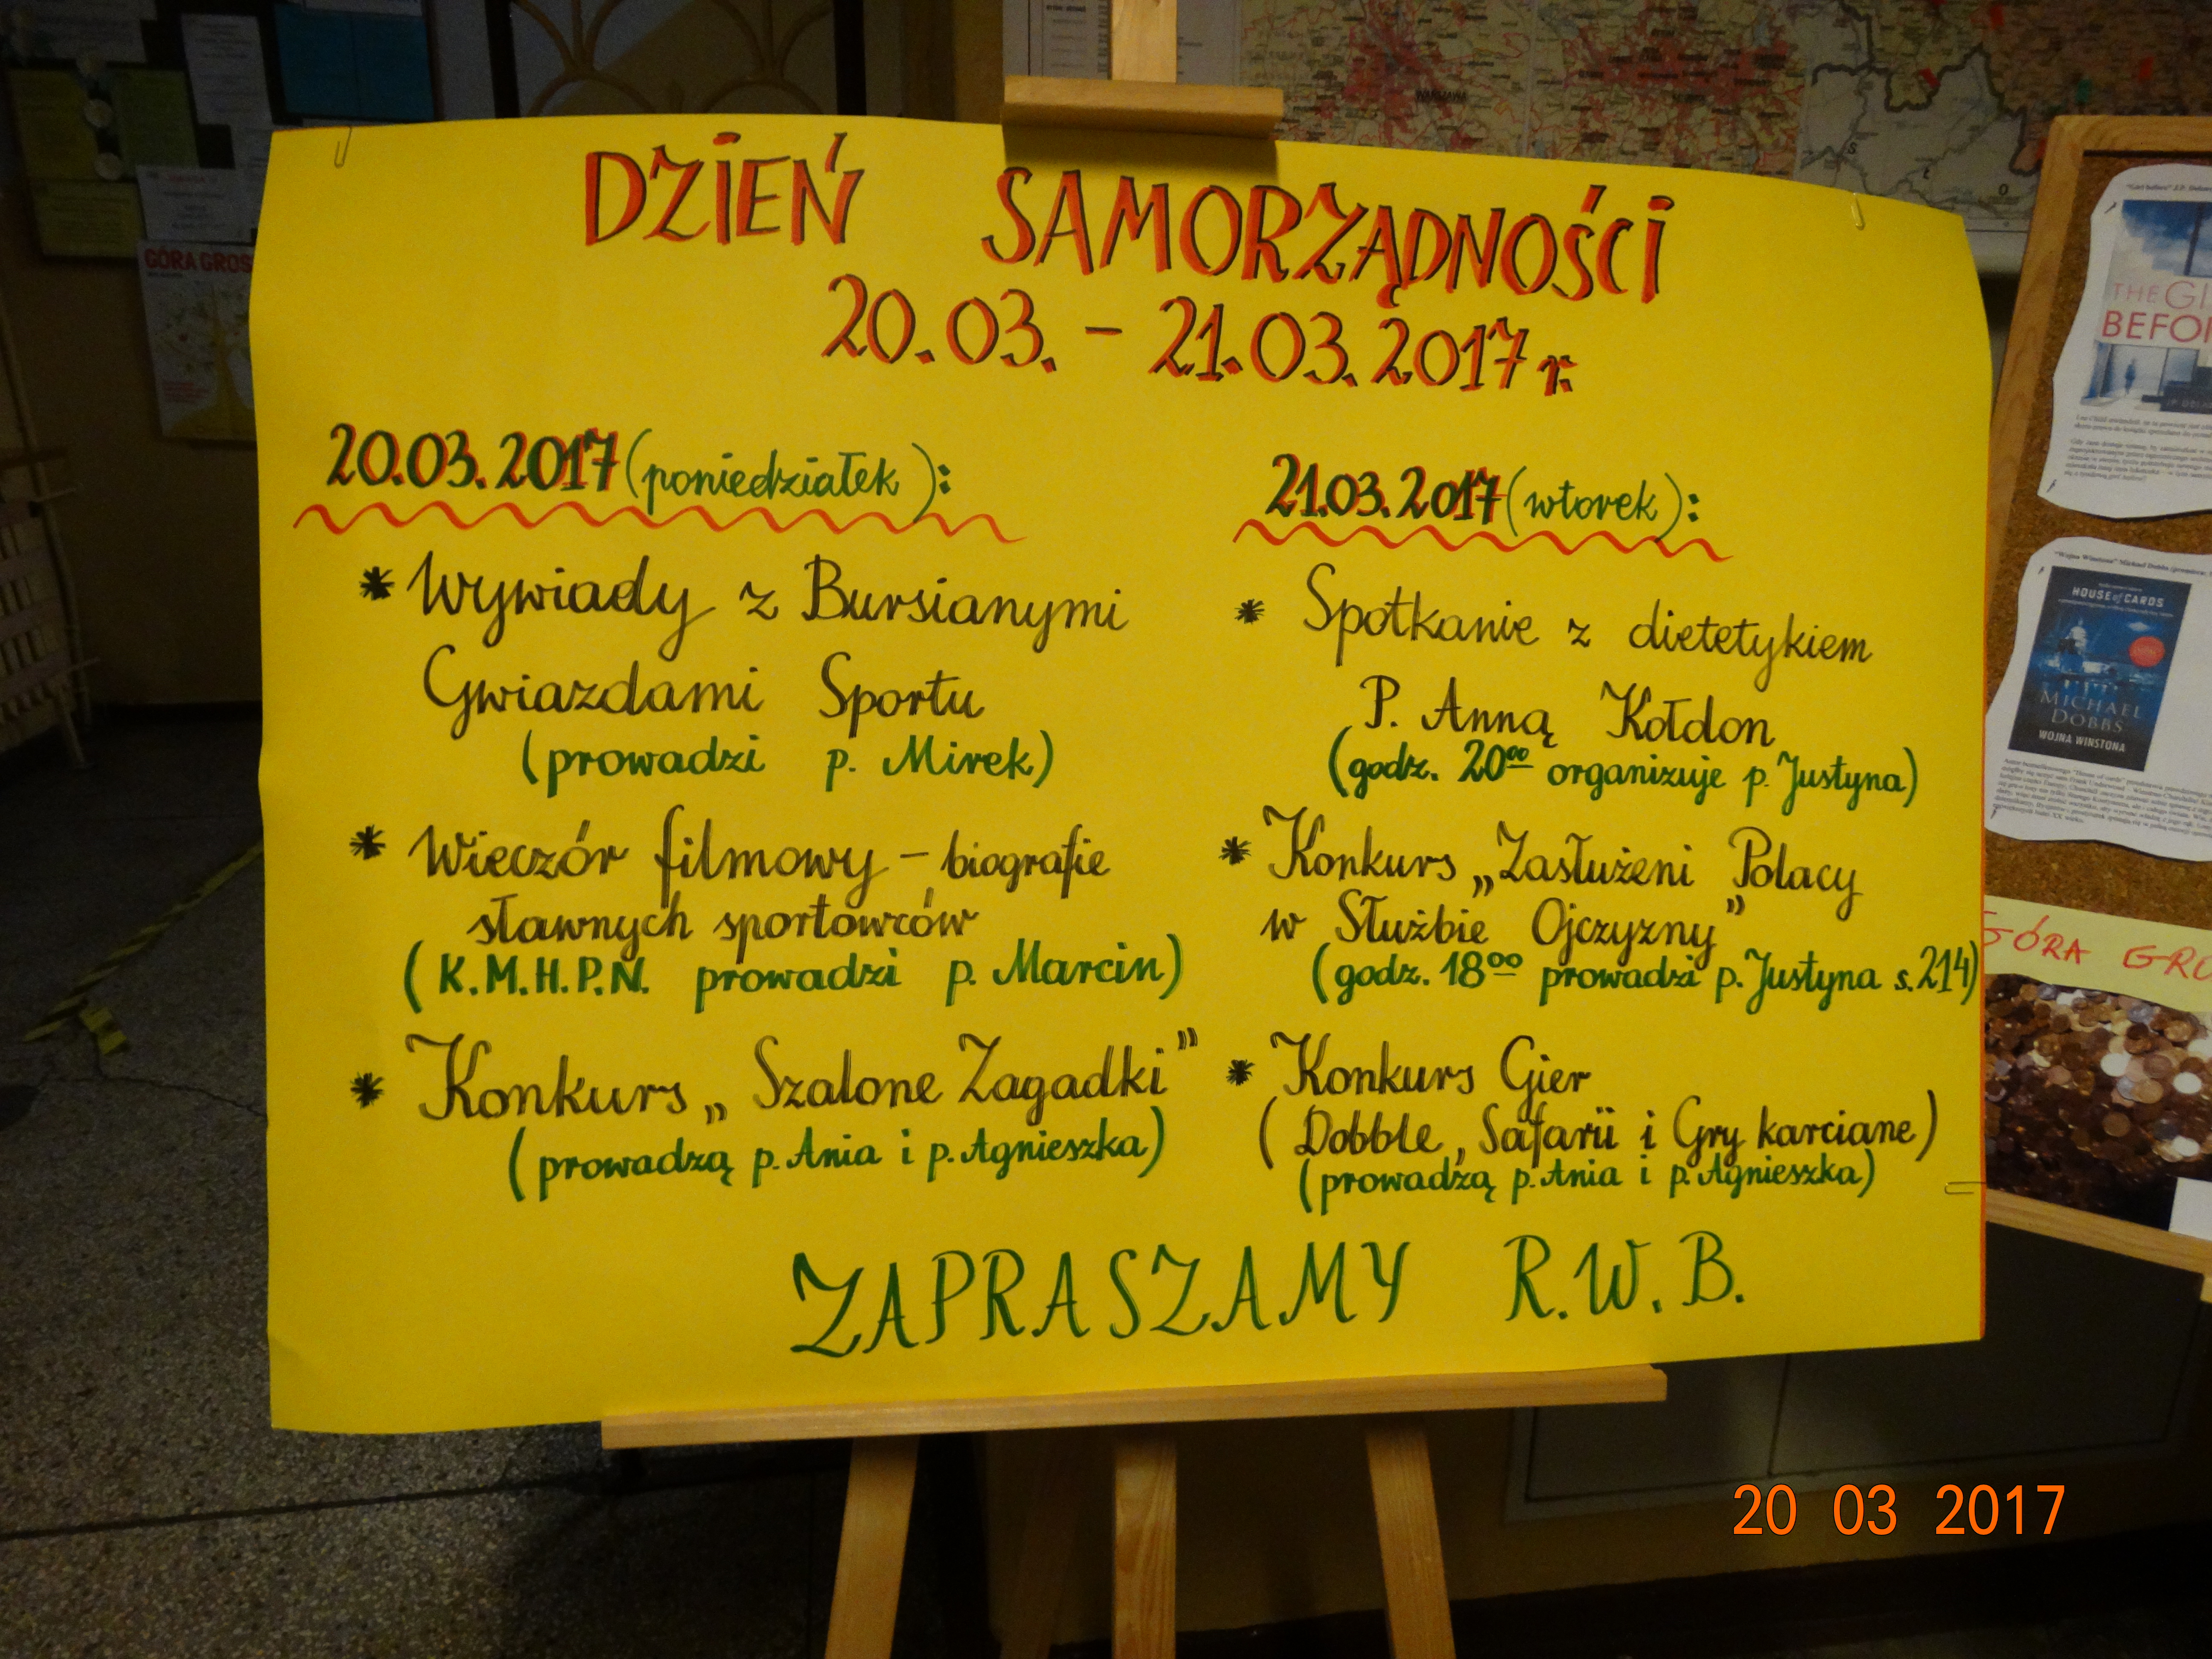 DZIEŃ SAMORZĄDNOŚCI
20.03. - 21.03.2017 r.
20.03.2017 (poniedziałek):
* Wywiady z Bursianymi
Gwiazdami Sportu
(prowadzi p. Mirek)
* Wieczór filmowy - biografie
sławnych sportowców
(K.M.H.P.N. prowadzi p. Marcin)
* Konkurs „Szalone Zagadki”
(prowadzą p. Ania i p. Agnieszka)
21.03.2017 (wtorek):
* Spotkanie z dietetykiem
P. Anną Kołdon
(godz. 20⁰⁰ organizuje p. Justyna)
* Konkurs „Zasłużeni Polacy
w Służbie Ojczyzny”
(godz. 18⁰⁰ prowadzi p. Justyna s. 214)
* Konkurs Gier
(Dobble, Safarii i Gry karciane)
(prowadzą p. Ania i p. Agnieszka)
ZAPRASZAMY R.W.B.
GÓRA GROS
WARSZAWA
THE GI
BEFOR
HOUSE of CARDS
MICHAEL
DOBBS
WOJNA WINSTONA
GÓRA GRO
20 03 2017